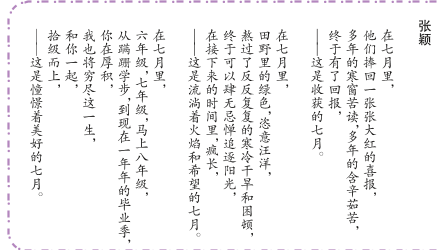 张颖
在七月里，
他们捧回一张张大红的喜报，
多年的寒窗苦读，多年的含辛茹苦，
终于有了回报，
——这是收获的七月。
在七月里，
田野里的绿色，恣意汪洋，
熬过了反反复复的寒冷干旱和困顿，
终于可以肆无忌惮追逐阳光，
在接下来的时间里，疯长，
——这是流淌着火焰和希望的七月。
在七月里，
六年级，七年级，马上八年级，
从蹒跚学步，到现在一年年的毕业季，
你在厚积，
我也将穷尽这一生，
和你一起，
拾级而上，
——这是憧憬着美好的七月。